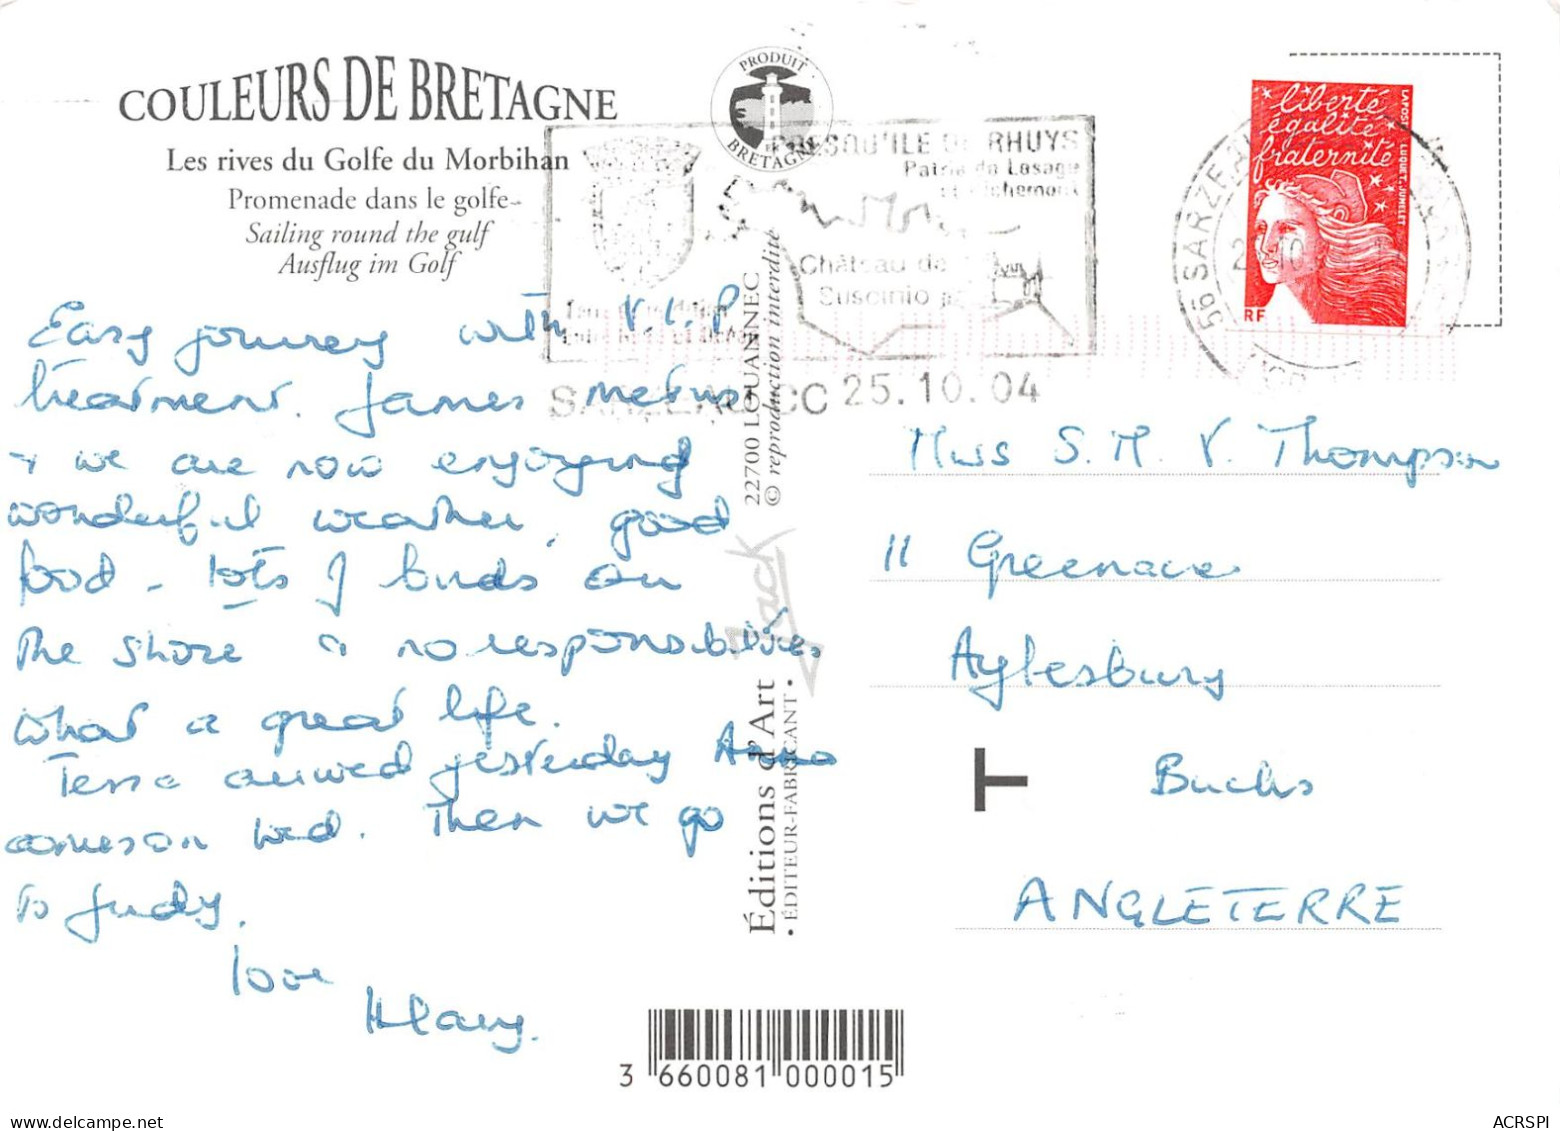 COULEURS DE BRETAGNE
Les rives du Golfe du Morbihan
Promenade dans le golfe
Sailing round the gulf
Ausflug im Golf
PRODUIT
BRETAGNE
PRESQU'ILE DE RHUYS
Patrie de Lesage
et Richemont
Château de
Suscinio
SARZEAU CC 25.10.04
56 SARZEAU
liberté
égalité
fraternité
LA POSTE LUQUET-JUMELET
RF
Easy journey with V.I.P
treatment. James met us
+ we are now enjoying
wonderful weather, good
food - lots of birds on
the shore + no responsibilities
What a great life.
Tessa arrived yesterday Anna
comes on Wed. Then we go
to Judy.
love
Hilary.
22700 LOUANNEC
© reproduction interdite
Jack
Éditions d'Art
• ÉDITEUR-FABRICANT •
Miss S. M. V. Thompson
11 Greenacres
Aylesbury
T
Bucks
ANGLETERRE
3 660081 000015
ACRSPI